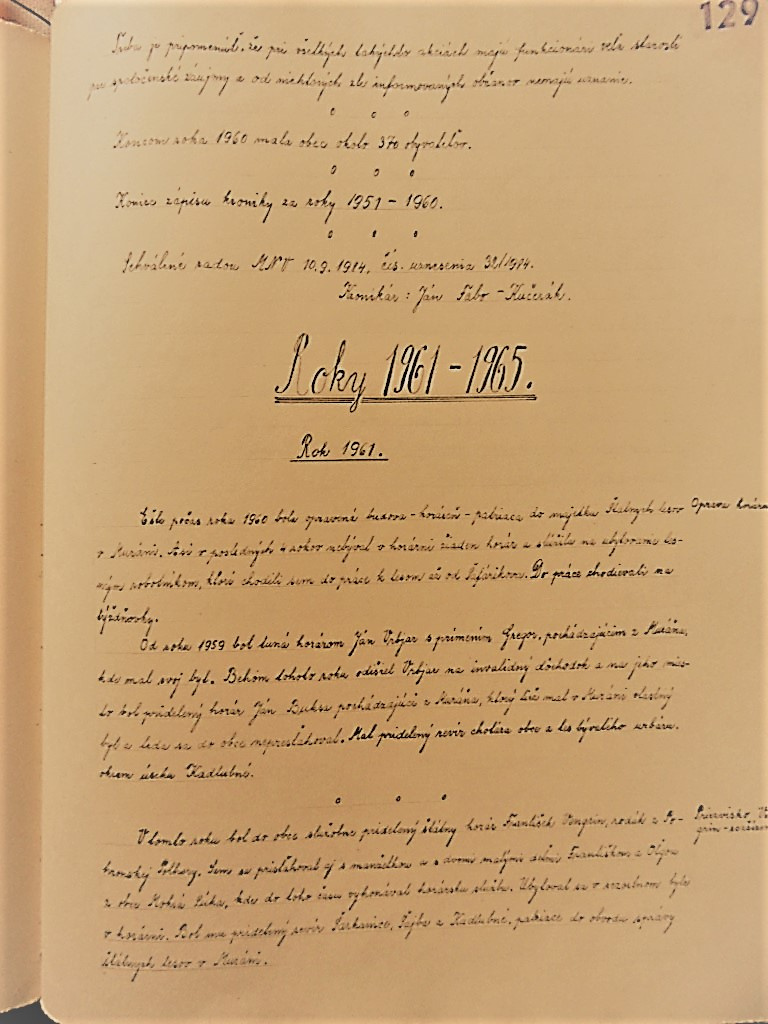 129
Treba pripomenúť, že pri všetkých takýchto akciách majú funkcionári veľa starostí
pre spoločenské záujmy a od niektorých zle informovaných občanov nemajú uznanie.
Koncom roka 1960 mala obec okolo 370 obyvateľov.
Koniec zápisu kroniky za roky 1951 - 1960.
Schválené radou MNV 10.9.1984, čís. uznesenia 32/1984.
Kronikár: Ján Fábo - Kučerák.
Roky 1961 - 1965.
Rok 1961.
Ešte počas roka 1960 bola opravená budova - horáreň - patriaca do majetku Štátnych lesov
Oprava horárne
v Muráni. Asi v posledných 4 rokov nebýval v horárni žiaden horár a slúžila na ubytovanie les-
ným robotníkom, ktorí chodili sem do práce k lesom až od Šafárikova. Do práce chodievali na
týždňovky.
Od roku 1959 bol tuná horárom Ján Vrbjar s prímením Gregor, pochádzajúcim z Muráňa,
kde mal svoj byt. Behom tohoto roku odišiel Vrbjar na invalidný dôchodok a na jeho mies-
to bol pridelený horár Ján Buksa pochádzajúci z Muráňa, ktorý tiež mal v Muráni vlastný
byt a teda sa do obce nepresťahoval. Mal pridelený revír chotára obce a les bývalého urbáru,
okrem úseku Kadlubné.
V tomto roku bol do obce služobne pridelený štátny horár František Vengrín, rodák z Po-
hronskej Polhory. Sem sa prisťahoval aj s manželkou a s dvomi malými deťmi Františkom a Oľgou
z obce Mokrá Lúka, kde do toho času vykonával horársku službu. Ubytoval sa v rezortnom byte
v horárni. Bol mu pridelený revír Šarkanica, Šajba a Kadlubné, patriace do obvodu správy
štátnych lesov v Muráni.